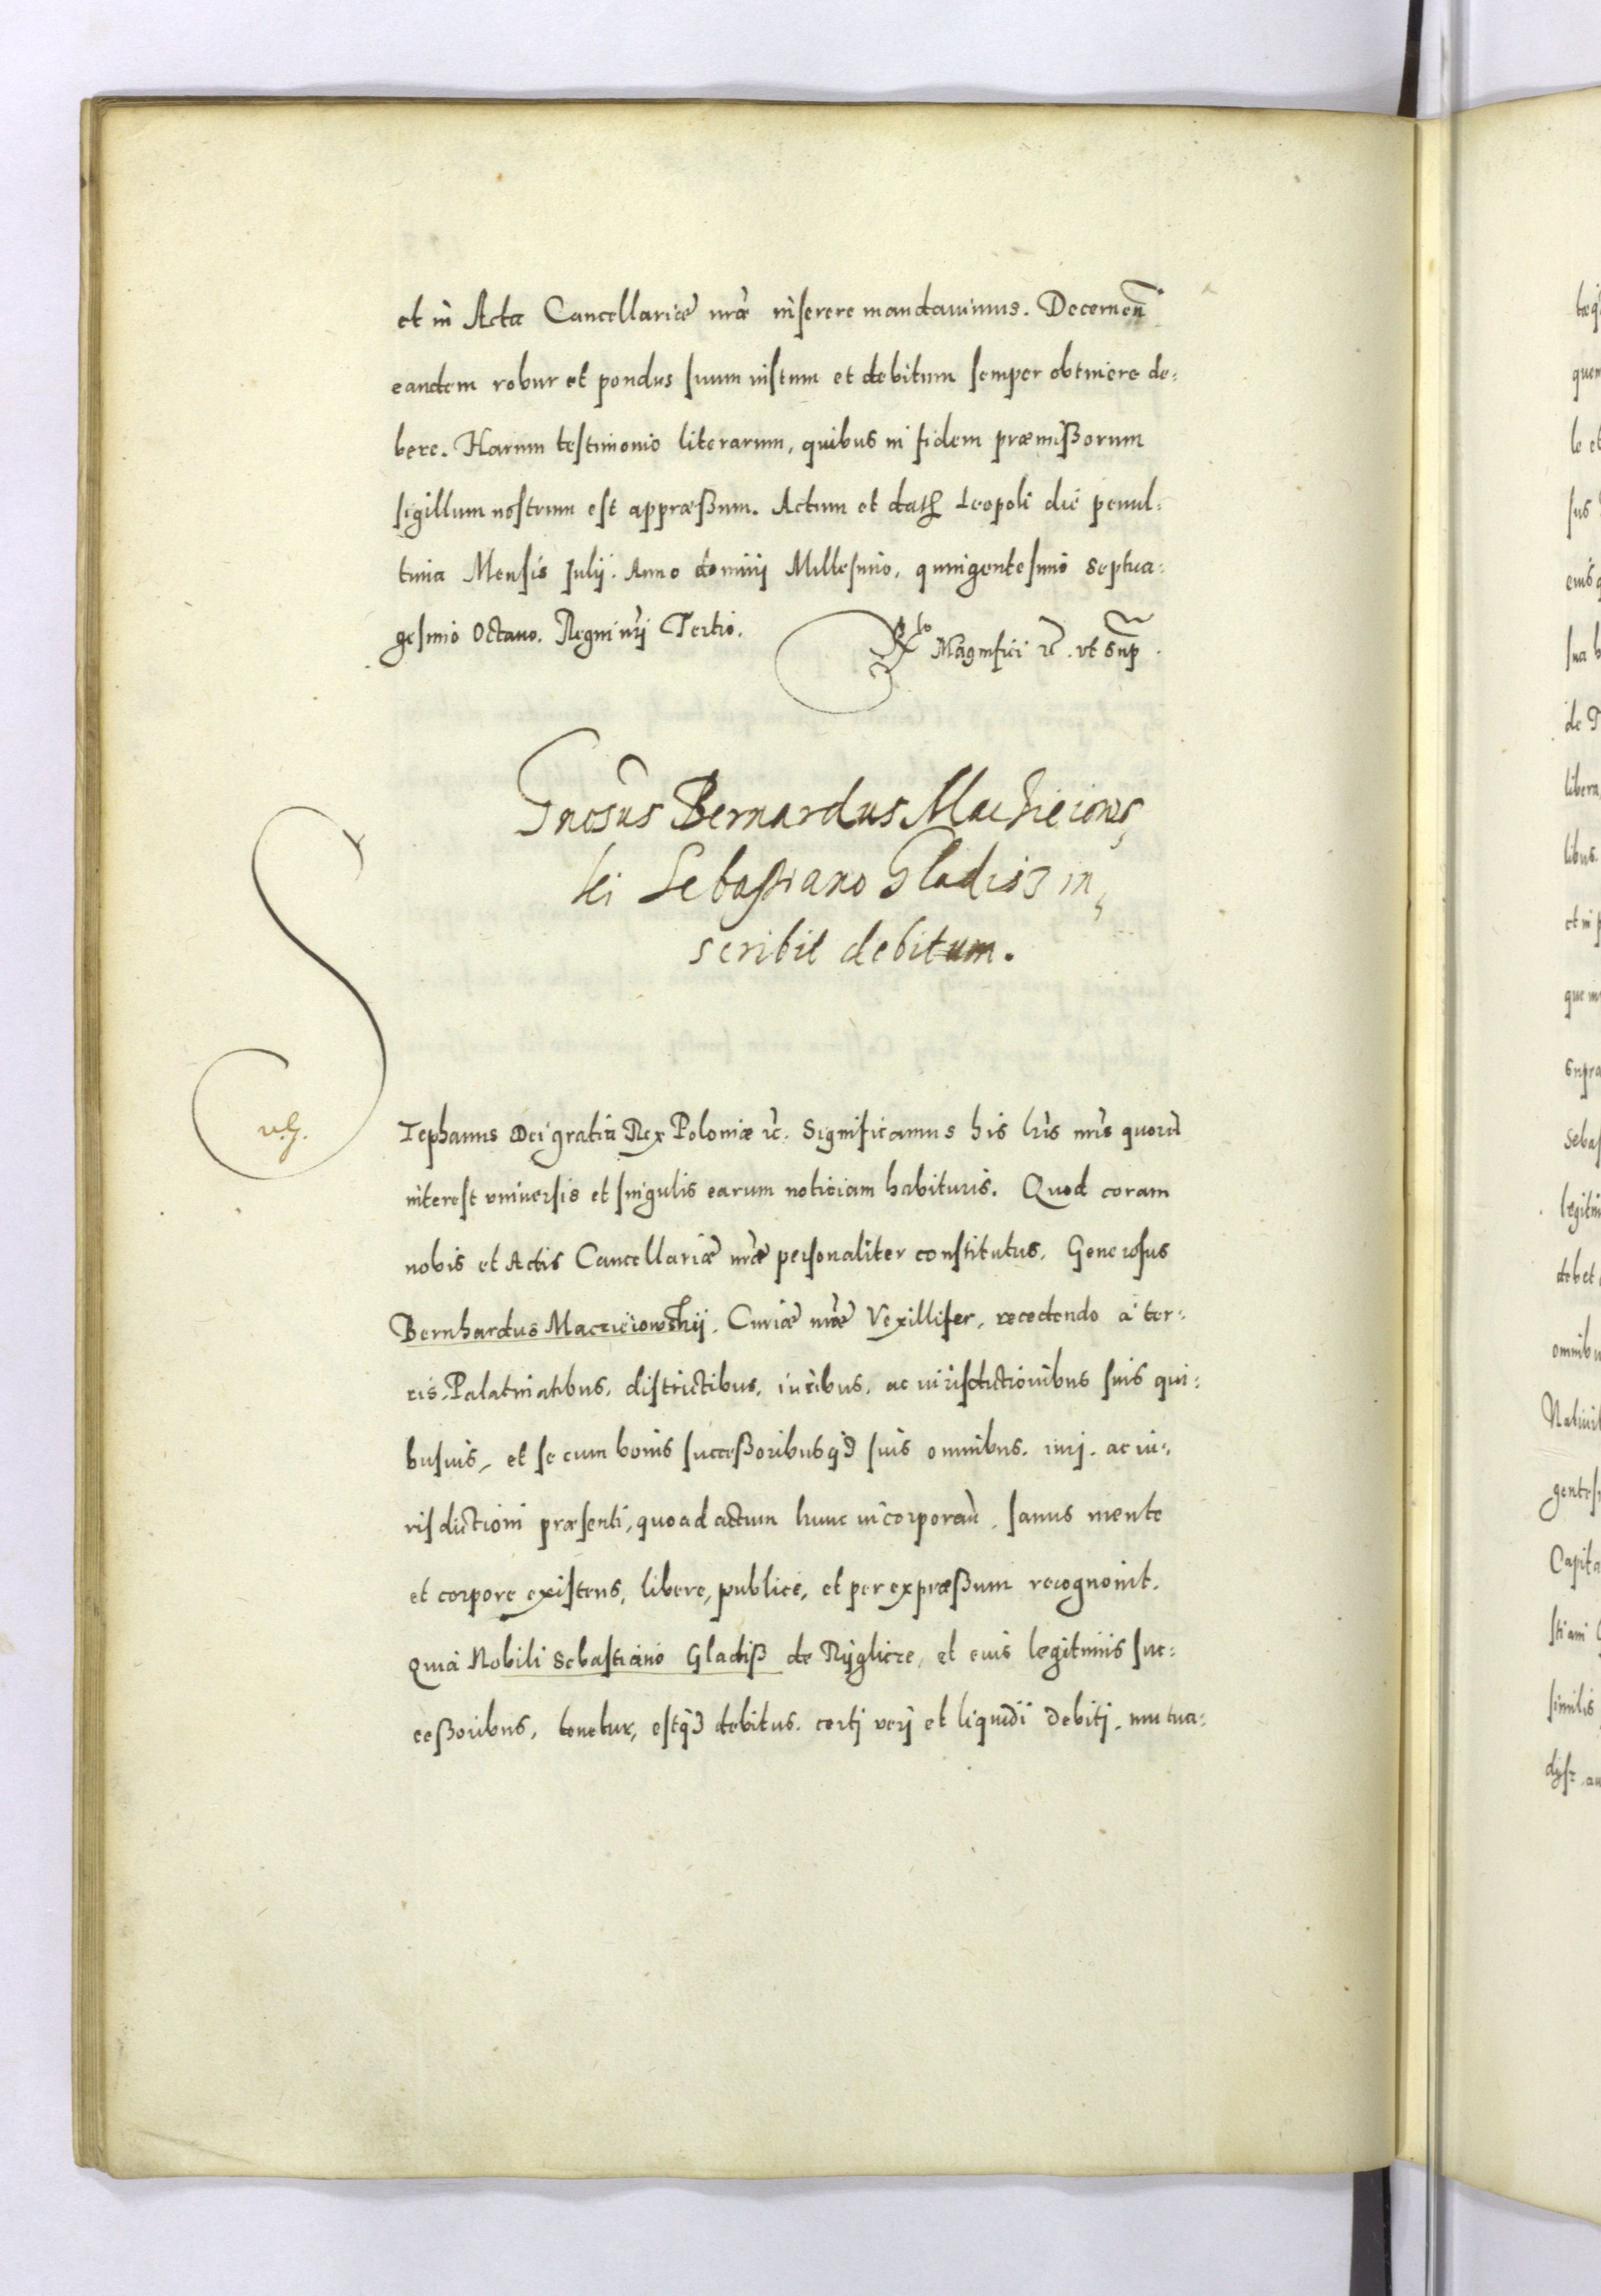 et in Acta Cancellariæ nr̃æ inserere mandauimus. Decernen̄
eandem robur et pondus suum iustum et debitum semper obtinere de=
bere. Harum testimonio literarum, quibus in fidem præmißorum
sigillum nostrum est appræßum. Actum et datꝝ Leopoli die penul=
tima Mensis Julij. Anno domini Millesimo, quingentesimo septua=
gesimo Octauo. Regni nr̃j Tertio.
Rlo Magnifici rc̃. vt sup̃.
Gnosus Bernardus Maciieiows,
ki Sebastiano Gladisz in,
scribit debitum.
Stephanus Dei gratia Rex Poloniæ rc̃. Significamus his lr̃is nr̃is quorũ
vG.
interest vniuersis et singulis earum noticiam habituris. Quod coram
nobis et Actis Cancellariæ nr̃æ personaliter constitutus, Generosus
Bernhardus Maczieiowskij, Curiæ nr̃æ Vexillifer, recedendo à ter=
ris, Palatinatibus, districtibus, iuribus, ac iurisdictionibus suis qui=
busuis, et se cum bonis succeßoribusqꝫ suis omnibus, iurj, ac iu=
risdictioni præsenti, quoad actum hunc incorporañ, sanus mente
et corpore existens, libere, publicè, et per expræßum recognouit.
Quia Nobili Sebastiano Gladiß de Rÿglicze, et eius legitimis suc=
ceßoribus, tenetur, estqꝫ debitus, certj verj et liquidi debitj, mutua=